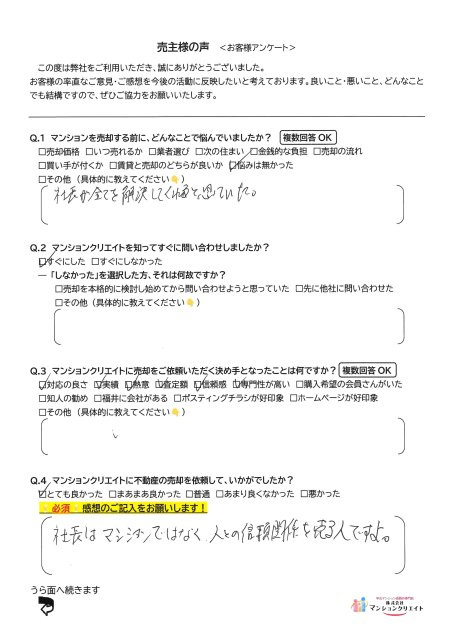 売主様の声 <お客様アンケート>
この度は弊社をご利用いただき、誠にありがとうございました。
お客様の率直なご意見・ご感想を今後の活動に反映したいと考えております。良いこと・悪いこと、どんなこと
でも結構ですので、ぜひご協力をお願いいたします。
Q.1 マンションを売却する前に、どんなことで悩んでいましたか? 複数回答 OK
□売却価格 □いつ売れるか □業者選び □次の住まい □金銭的な負担 □売却の流れ
□買い手が付くか □賃貸と売却のどちらが良いか ☑悩みは無かった
□その他(具体的に教えてください👇)
社長が全てを解決してくれると思っていた。
Q.2 マンションクリエイトを知ってすぐに問い合わせしましたか?
☑すぐにした □すぐにしなかった
―「しなかった」を選択した方、それは何故ですか?
□売却を本格的に検討し始めてから問い合わせようと思っていた □先に他社に問い合わせた
□その他(具体的に教えてください👇)
Q.3 マンションクリエイトに売却をご依頼いただく決め手となったことは何ですか? 複数回答 OK
☑対応の良さ ☑実績 ☑熱意 ☑査定額 ☑信頼感 ☑専門性が高い □購入希望の会員さんがいた
□知人の勧め □福井に会社がある □ポスティングチラシが好印象 □ホームページが好印象
□その他(具体的に教えてください👇)
Q.4 マンションクリエイトに不動産の売却を依頼して、いかがでしたか?
☑とても良かった □まあまあ良かった □普通 □あまり良くなかった □悪かった
必須 感想のご記入をお願いします!
社長はマンションではなく人との信頼関係を売る人ですよ。
うら面へ続きます
株式会社
マンションクリエイト